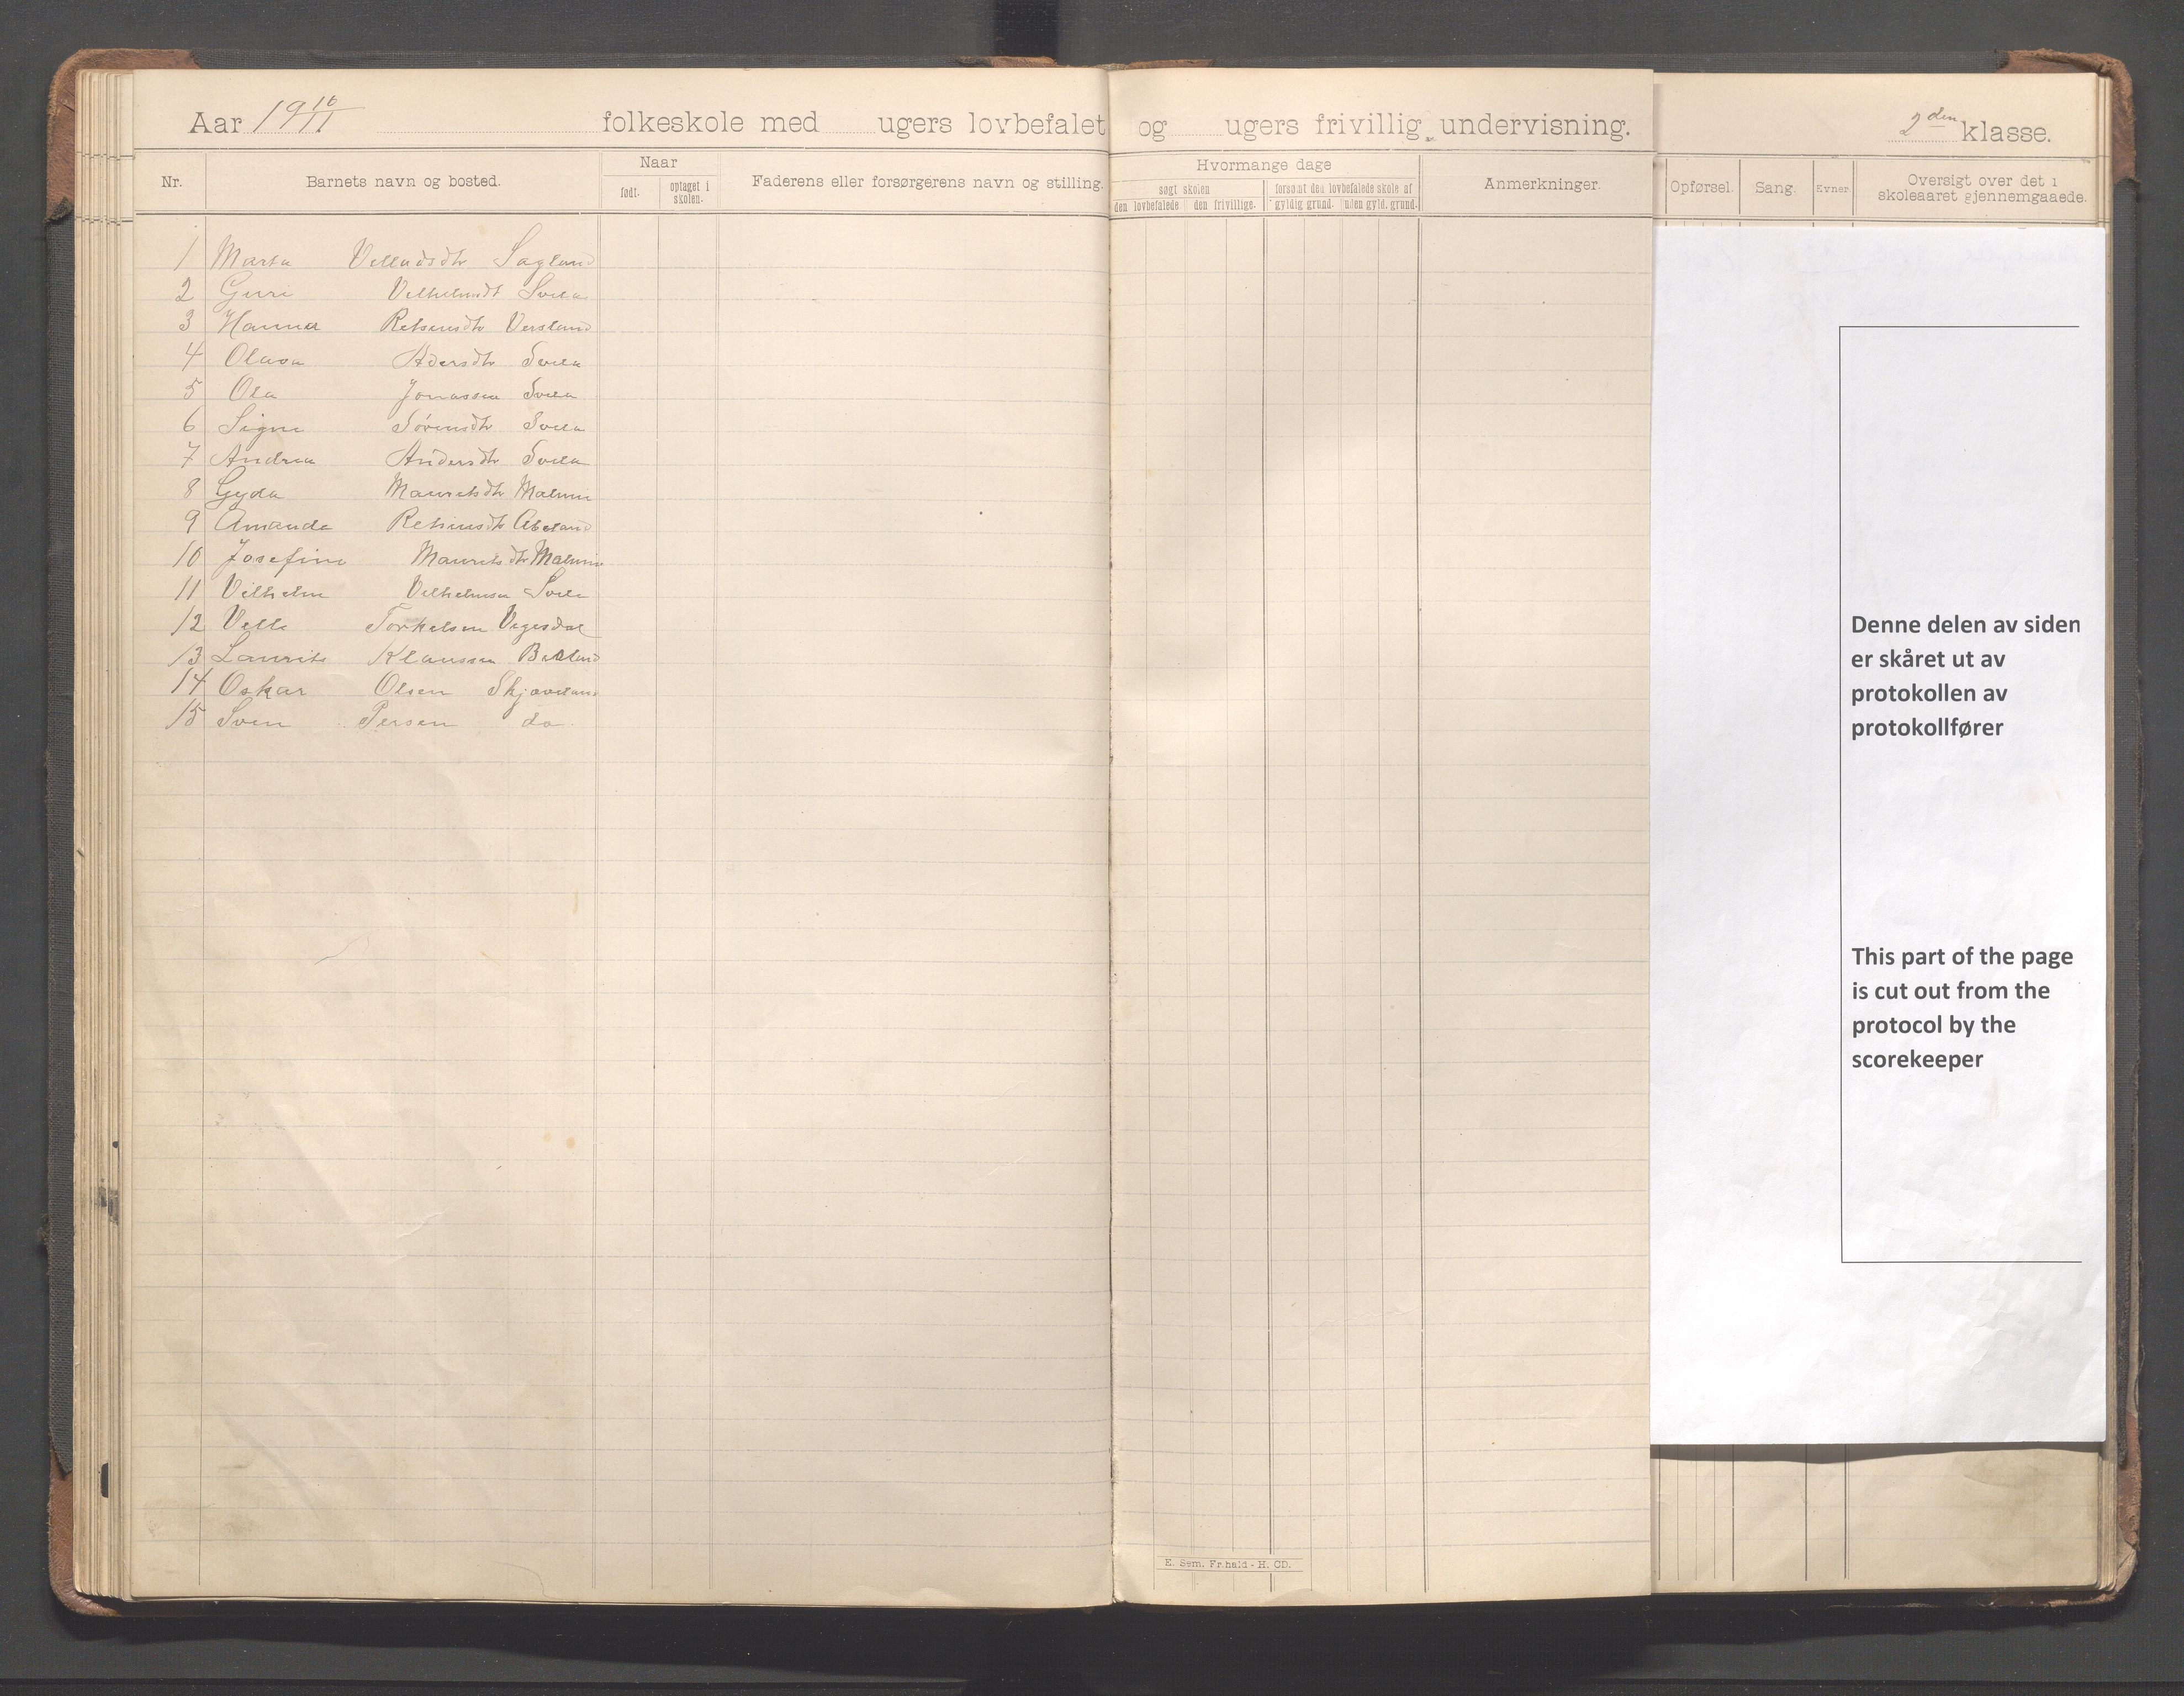 Aar 19 10/11 folkeskole med ugers lovbefalet og ugers frivillig undervisning. 2den klasse.
Nr. Barnets navn og bosted. Naar født. optaget i skolen. Faderens eller forsørgerens navn og stilling. Hvormange dage søgt skolen den lovbefalede den frivillige. forsømt den lovbefalede skole af gyldig grund. uden gyld. grund. Anmerkninger. Opførsel. Sang. Evner. Oversigt over det i skoleaaret gjennemgaaede.
1 Marta Sagland
2 Guri Svela
3 Hanna Versland
4 Olava Svela
5 Ola Jonassen Svela
6 Signe Sørensdtr Svela
7 Andrea Andersdtr Svela
8 Gyda Mauritsdtr Malmin
9 Amanda Abeland
10 Josefine Mauritsdtr Malmin
11 Vilhelm Vilhelmsen Svela
12 Torkelsen Vegesdal
13 Laurits Klaussen
14 Oskar Olsen Skjæveland
15 Sven Persen do
Denne delen av siden
er skåret ut av
protokollen av
protokollfører
This part of the page
is cut out from the
protocol by the
scorekeeper
E. Sem. Fr.hald - H. CD.